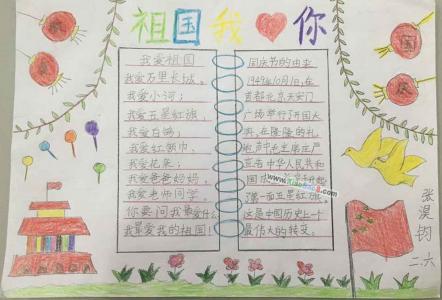 祖国我你
国
庆
我爱祖国
我爱万里长城。
我爱小河;
我爱五星红旗,
我爱白鸽;
我爱红领巾,
我爱花朵;
我爱爸爸妈妈,
我爱老师同学。
你要问我最爱什么,
我最爱我的祖国!
国庆节的由来
1949年10月1日,在
首都北京天安门
广场举行了开国大
典,在隆隆的礼
炮声中毛主席庄严
宣告中华人民共和
国成立 升起
第一面五星红旗。
这是中国历史上一个
最伟大的转变。
张淏钧
二.六